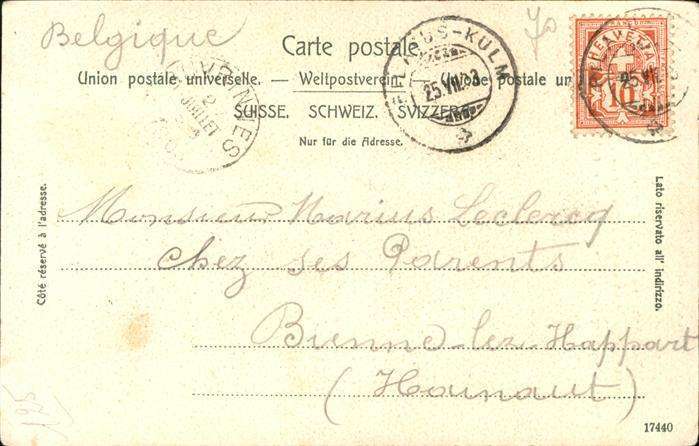 Belgique
Carte postale.
Union postale universelle. — Weltpostverein. — Unione postale un
SUISSE. SCHWEIZ. SVIZZERA
Nur für die Adresse.
KULM
25.VII.
HELVETIA
10
25.VII
2
JUILLET
Côté réservé à l'adresse.
Lato riservato all' indirizzo.
Monsieur Marius Leclercq
Chez ses Parents
Bienne-lez-Happart
(Hainaut)
17440